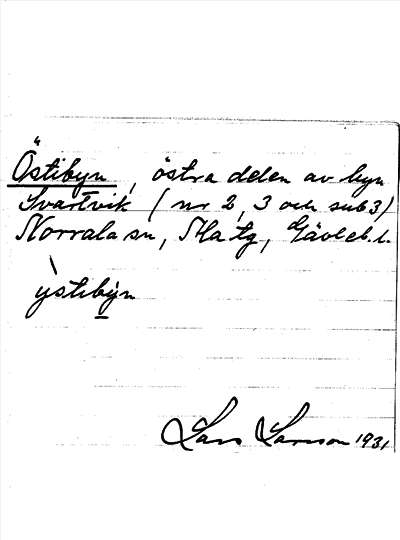 Östibyn, östra delen av byn
Svartvik (nr 2, 3 och sub3)
Norrala sn, Ha tg, Gävleb. l.
ỳstibyn
Lars Larsson 1931